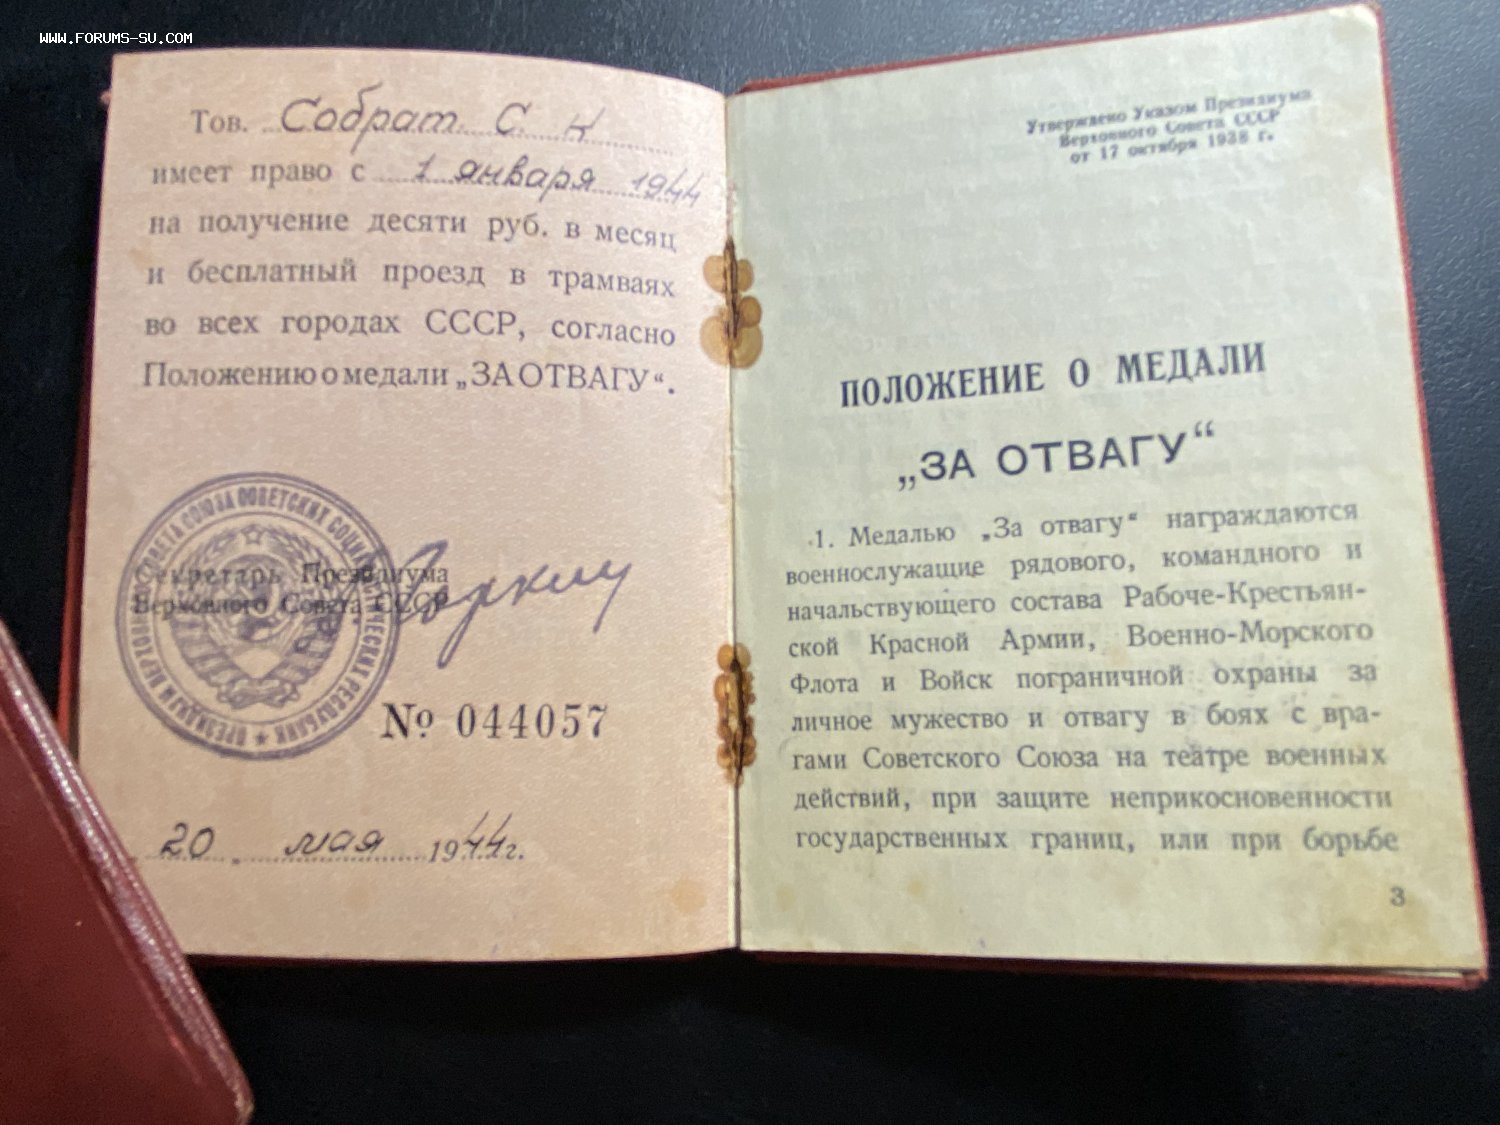 WWW.FORUMS-SU.COM
Тов. Собрат С. К
имеет право с 1 января 1944
на получение десяти руб. в месяц
и бесплатный проезд в трамваях
во всех городах СССР, согласно
Положению о медали „ЗА ОТВАГУ“.
ПРЕЗИДИУМ ВЕРХОВНОГО СОВЕТА СОЮЗА СОВЕТСКИХ СОЦИАЛИСТИЧЕСКИХ РЕСПУБЛИК
Секретарь Президиума
Верховного Совета СССР
№ 044057
20 мая 1944 г.
Утверждено Указом Президиума
Верховного Совета СССР
от 17 октября 1938 г.
ПОЛОЖЕНИЕ О МЕДАЛИ
„ЗА ОТВАГУ“
1. Медалью „За отвагу“ награждаются
военнослужащие рядового, командного и
начальствующего состава Рабоче-Крестьян-
ской Красной Армии, Военно-Морского
Флота и Войск пограничной охраны за
личное мужество и отвагу в боях с вра-
гами Советского Союза на театре военных
действий, при защите неприкосновенности
государственных границ, или при борьбе
3